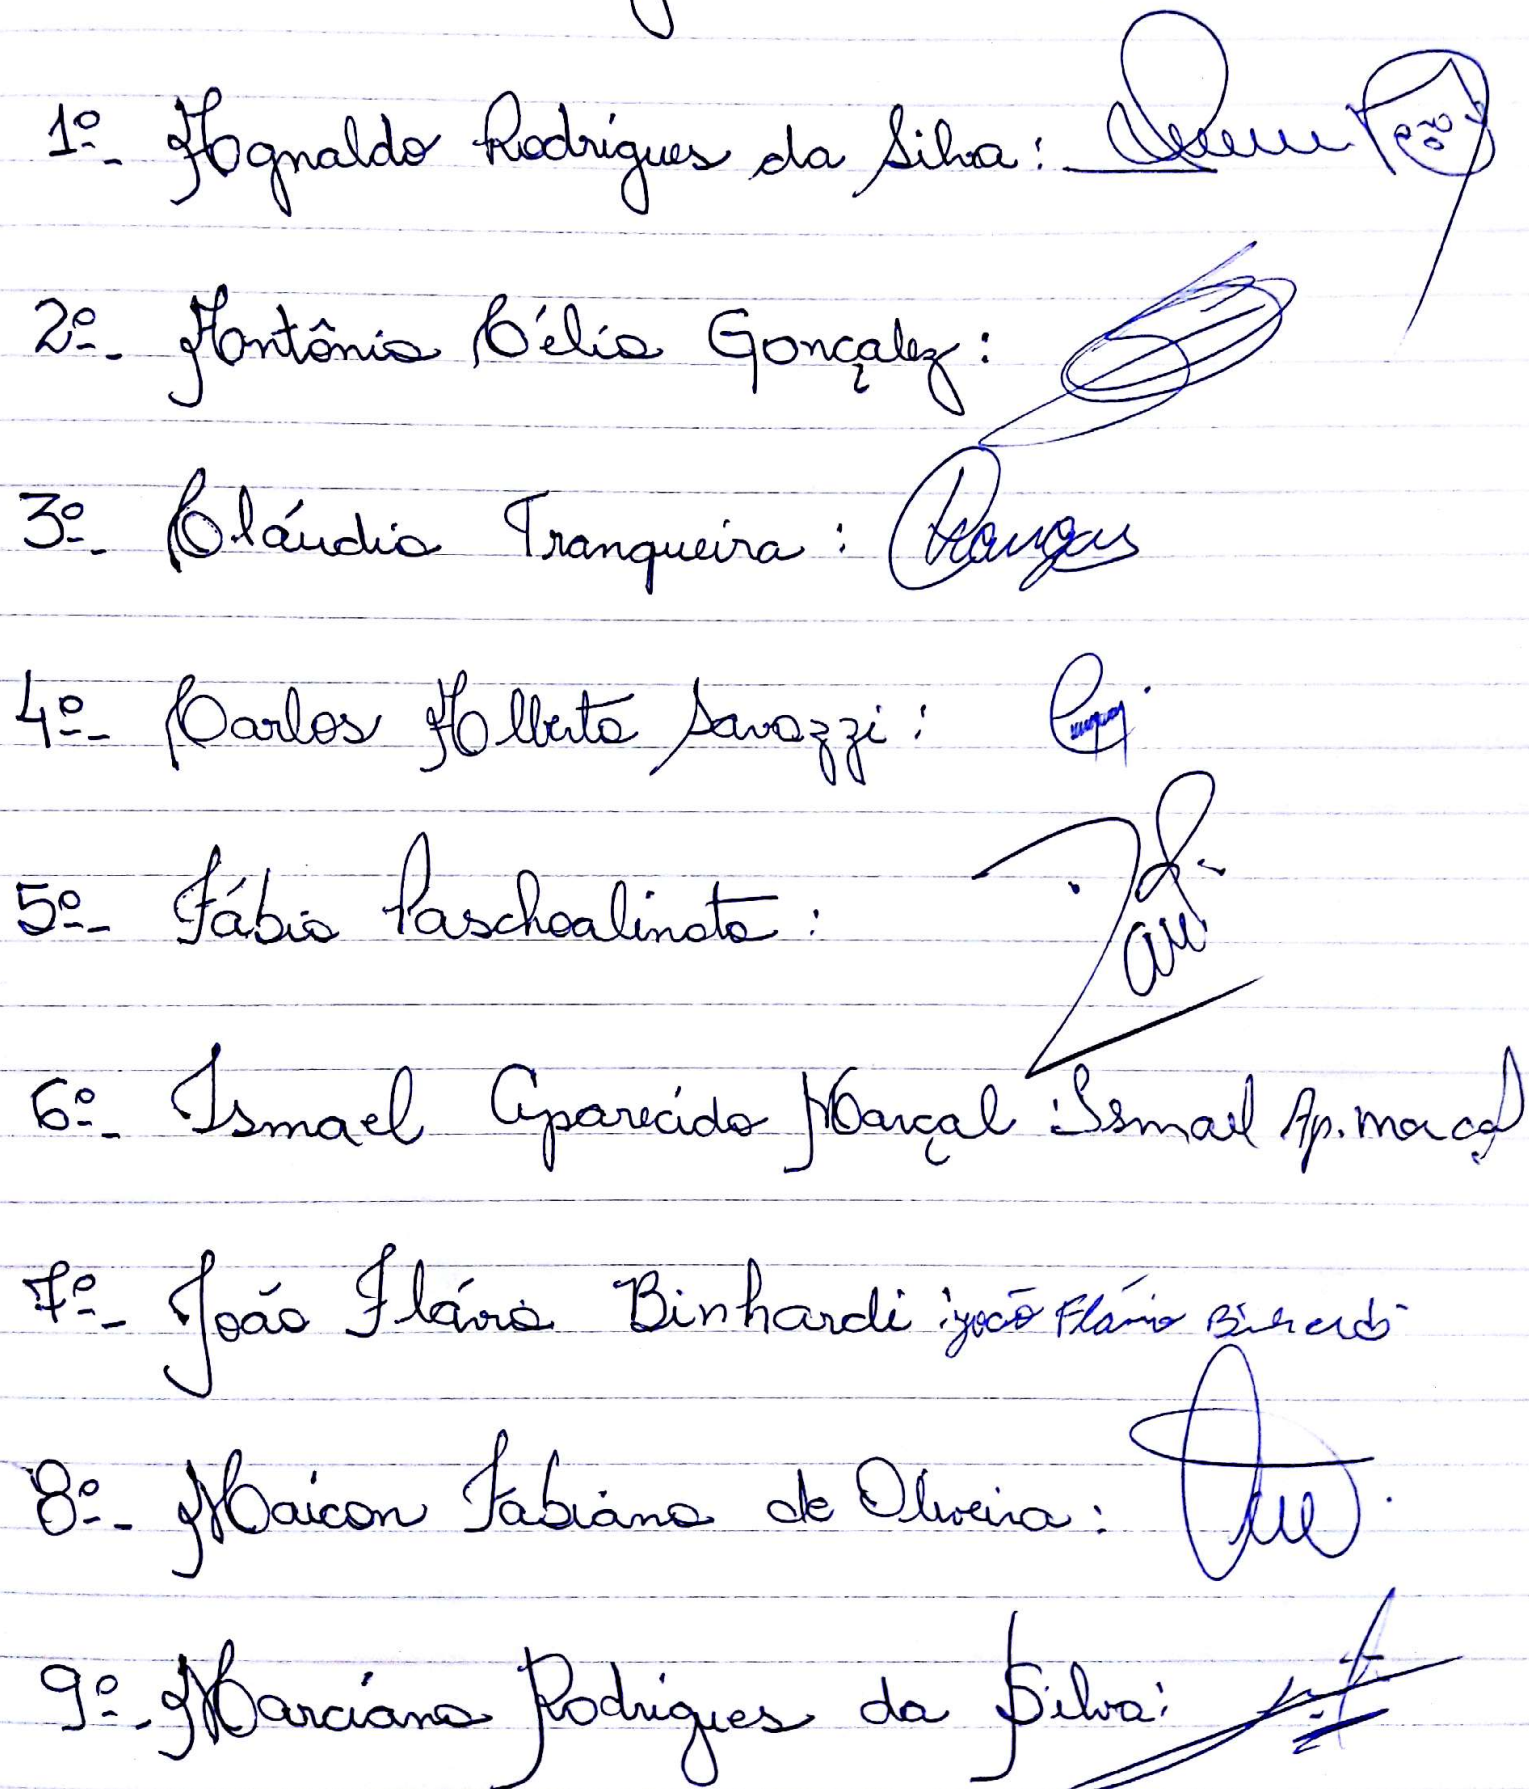 1º- Agnaldo Rodrigues da Silva:
2º- Antônio Célio Gonçalez:
3º- Cláudio Tranqueira:
4º- Carlos Alberto Savazzi:
5º- Fábio Paschoalinoto:
6º- Ismael Aparecido Marçal: Ismael Ap. Marçal
7º- João Flávio Binhardi: João Flávio Binhardi
8º- Maicon Fabiano de Oliveira:
9º- Marciano Rodrigues da Silva: